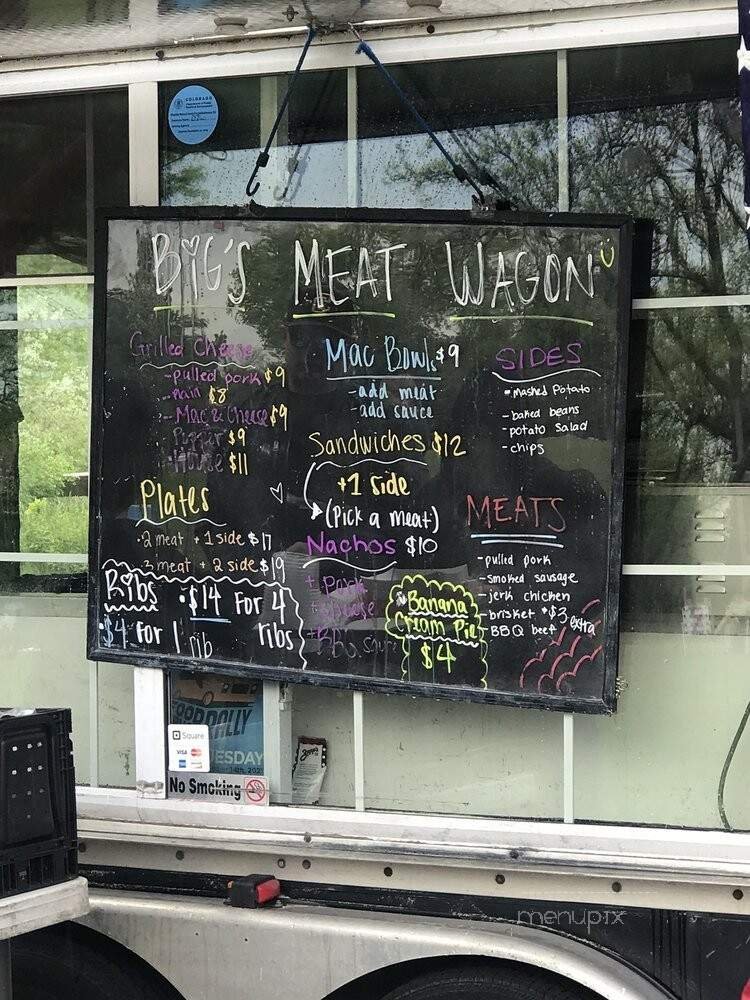 COLORADO
BIG'S MEAT WAGON
Grilled Cheese
-pulled pork $9
-Plain $8
-Mac & Cheese $9
Pepper $9
-House $11
Plates
·2 meat + 1 side $17
·3 meat + 2 side $19
Ribs
·$14 For 4 ribs
·$4 For 1 rib
Mac Bowls $9
-add meat
-add sauce
Sandwiches $12
+1 side
(pick a meat)
Nachos $10
+ Pork
+ cheese
+ BBQ
Banana
Cream Pie
$4
SIDES
-Mashed Potato
-baked beans
-potato salad
-chips
MEATS
-pulled pork
-smoked sausage
-jerk chicken
-brisket *$3 extra
-BBQ beef
RALLY
ESDAY
Square
VISA
No Smoking
menupix